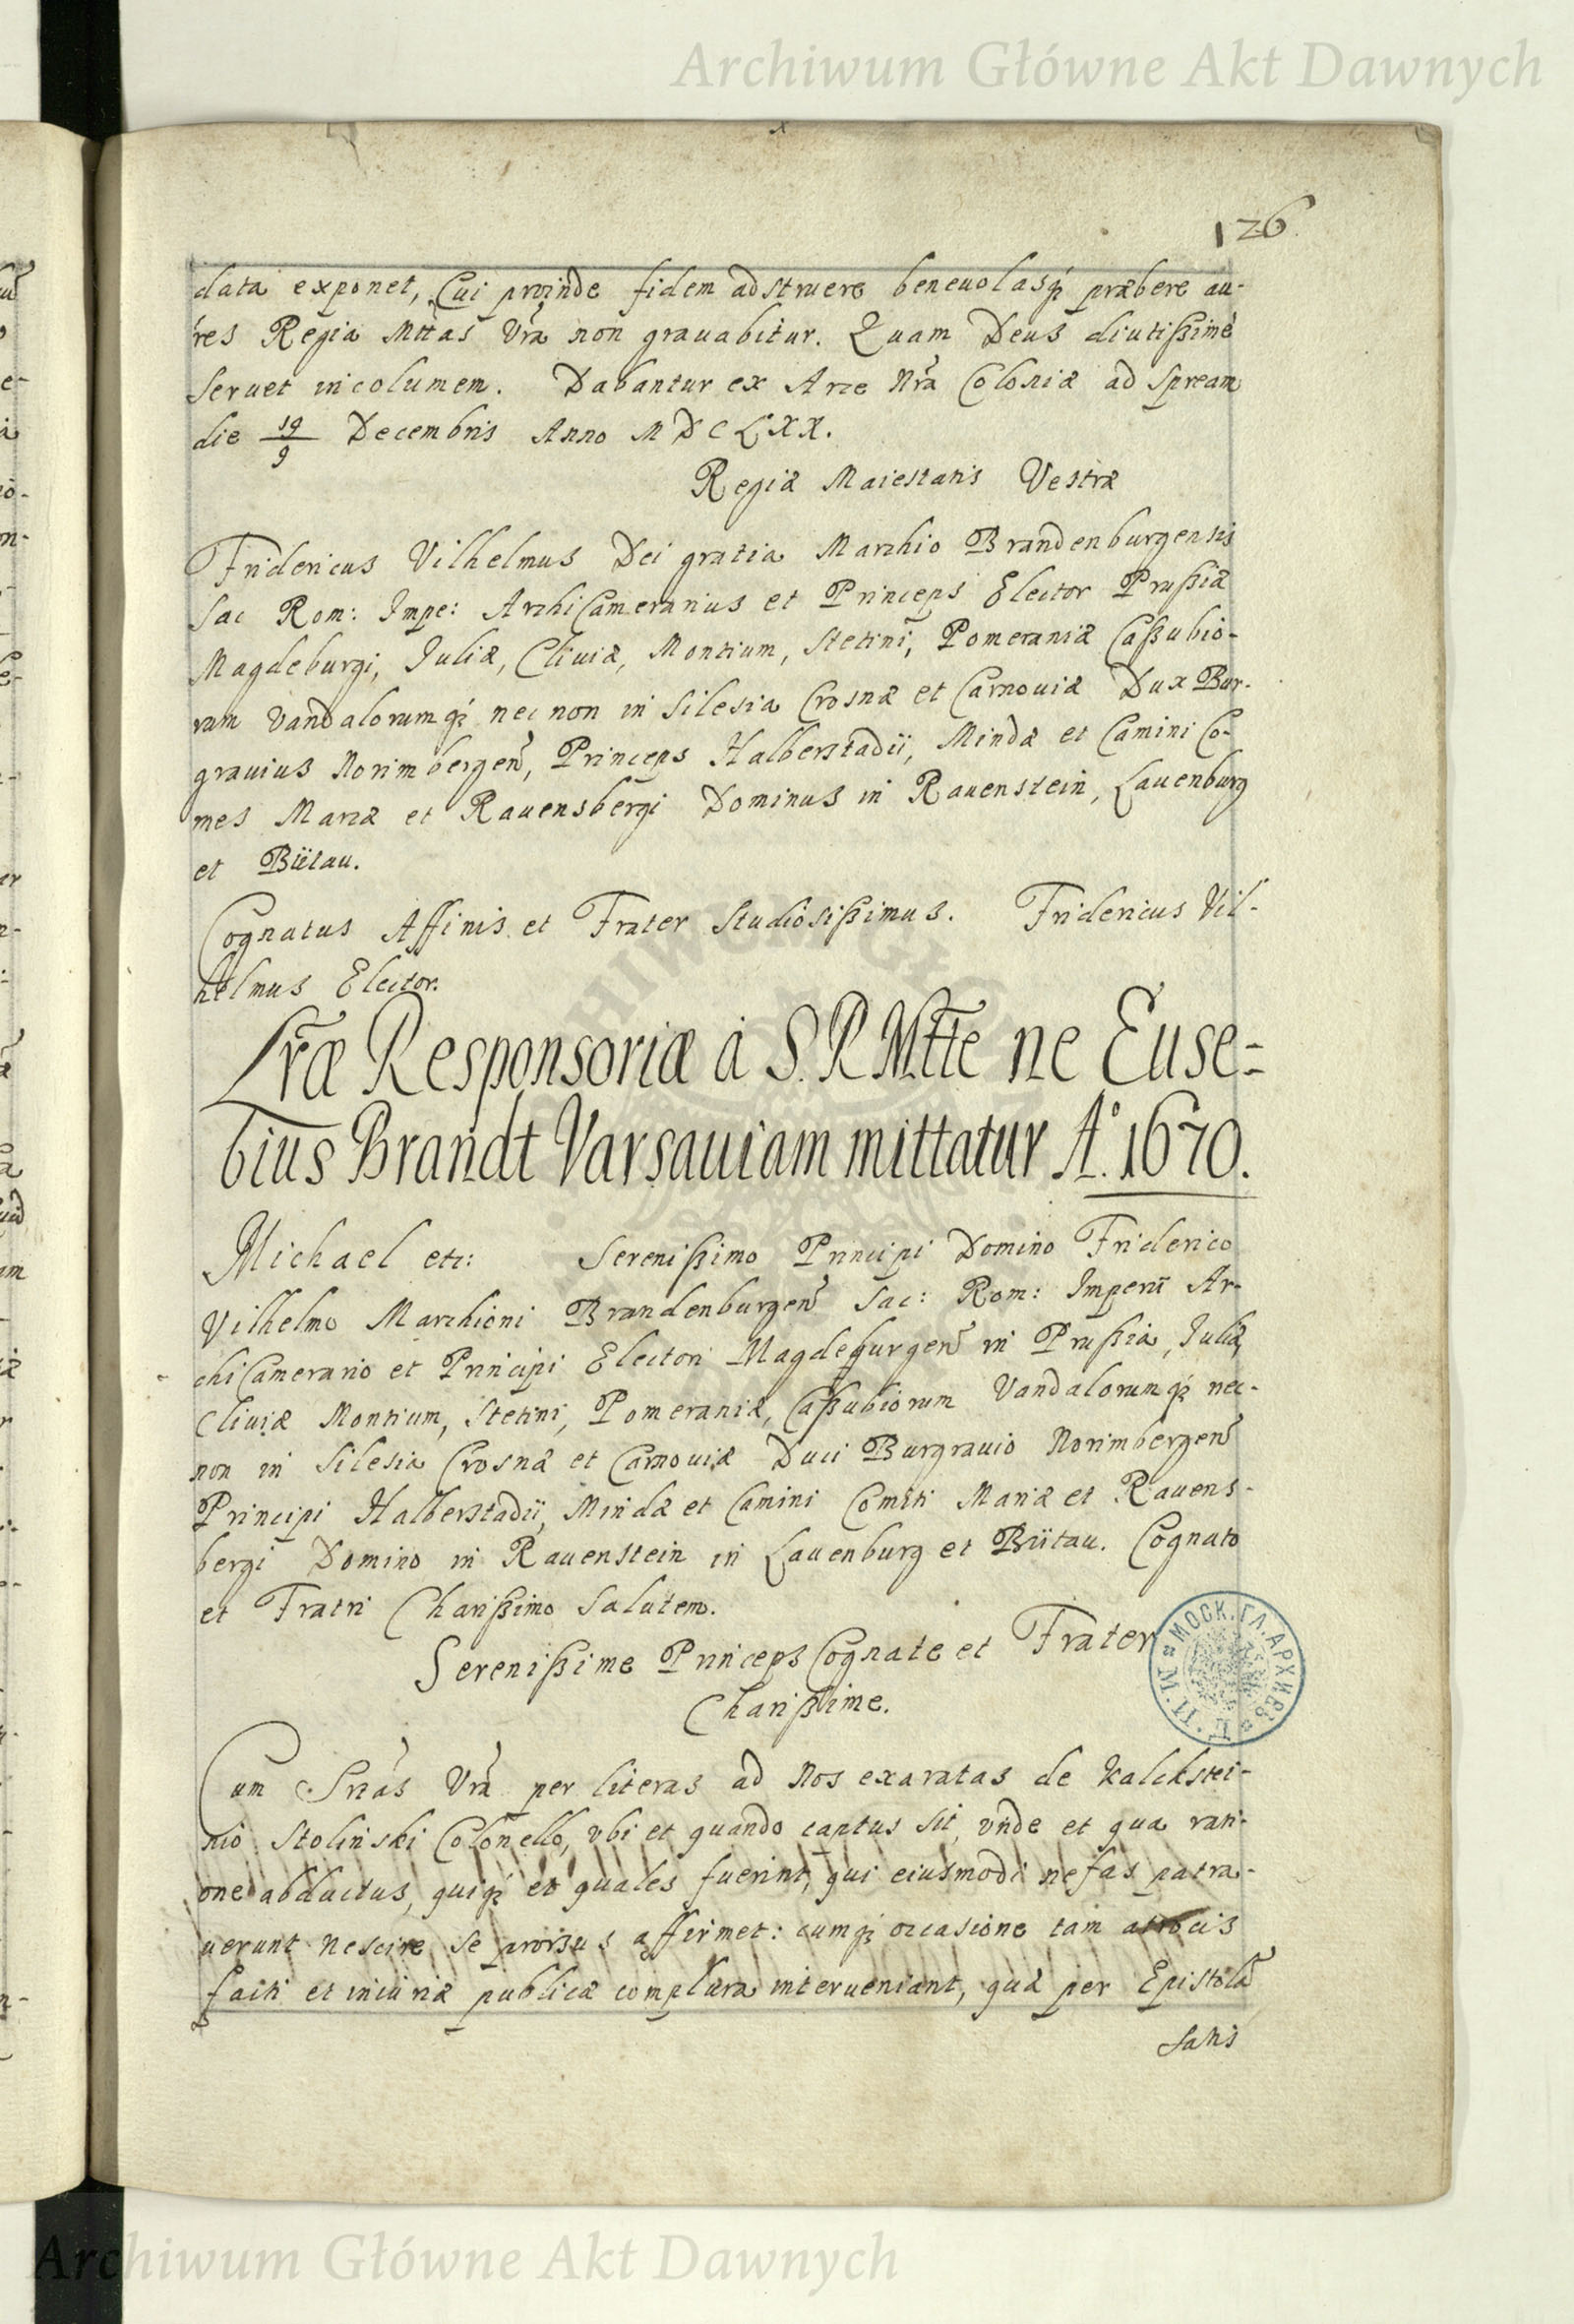 Archiwum Główne Akt Dawnych
126
data exponet, Cui proinde fidem adstruere beneuolasq; præbere au-
res Regia Mttas Vra non grauabitur. Quam Deus diutißime
Seruet incolumem. Dabantur ex Arce Nra Coloniæ ad Spream
die 19/9 Decembris Anno MDCLXX.
Regiæ Maiestatis Vestræ
Fridericus Vilhelmus Dei gratia Marchio Brandenburgensis
Sac Rom: Impe: ArchiCamerarius et Princeps Elector Prußiæ
Magdeburgi, Juliæ, Cliuiæ, Montium, Stetini, Pomeraniæ Caßubio-
rum Vandalorumq; nec non in Silesia Crosnæ et Carnouiæ Dux Bur-
grauius Norimbergen, Princeps Halberstadii, Mindæ et Camini Co-
mes Marcæ et Rauensbergi Dominus in Rauenstein, Lauenburg
et Bütau.
Cognatus Affinis et Frater Studiosißimus. Fridericus Vil-
helmus Elector.
Lræ Responsoriæ à S. R Mtte ne Euse-
bius Brandt Varsauiam mittatur Aº. 1670.
Michael etc: Serenißimo Principi Domino Friderico
Vilhelmo Marchioni Brandenburgen Sac: Rom: Imperii Ar-
chiCamerario et Principi Electori Magdeburgen in Prußia, Juliæ,
Cliuiæ Montium, Stetini, Pomeraniæ, Caßubiorum Vandalorumq; nec-
non in Silesia Crosnæ et Carnouiæ Duci Burgrauio Norimbergen
Principi Halberstadii, Mindæ et Camini Comiti Marciæ et Rauens-
bergi Domino in Rauenstein in Lauenburg et Bütau. Cognato
et Fratri Charißimo Salutem.
Serenißime Princeps Cognate et Frater
Charißime.
МОСК. ГЛ. АРХИВЪ
М. И. Д.
Cum Srtas Vra per literas ad Nos exaratas de Kalckstei-
nio Stolinski Colonello, vbi et quando captus sit, vnde et qua rati-
one abductus, quiq; et quales fuerint, qui eiusmodi nefas patra-
uerunt Nescire se prorsus affirmet: cumq; occasione tam atrocis
facti et iniuriæ publicæ complura interueniant, quæ per Epistola
satis
Archiwum Główne Akt Dawnych